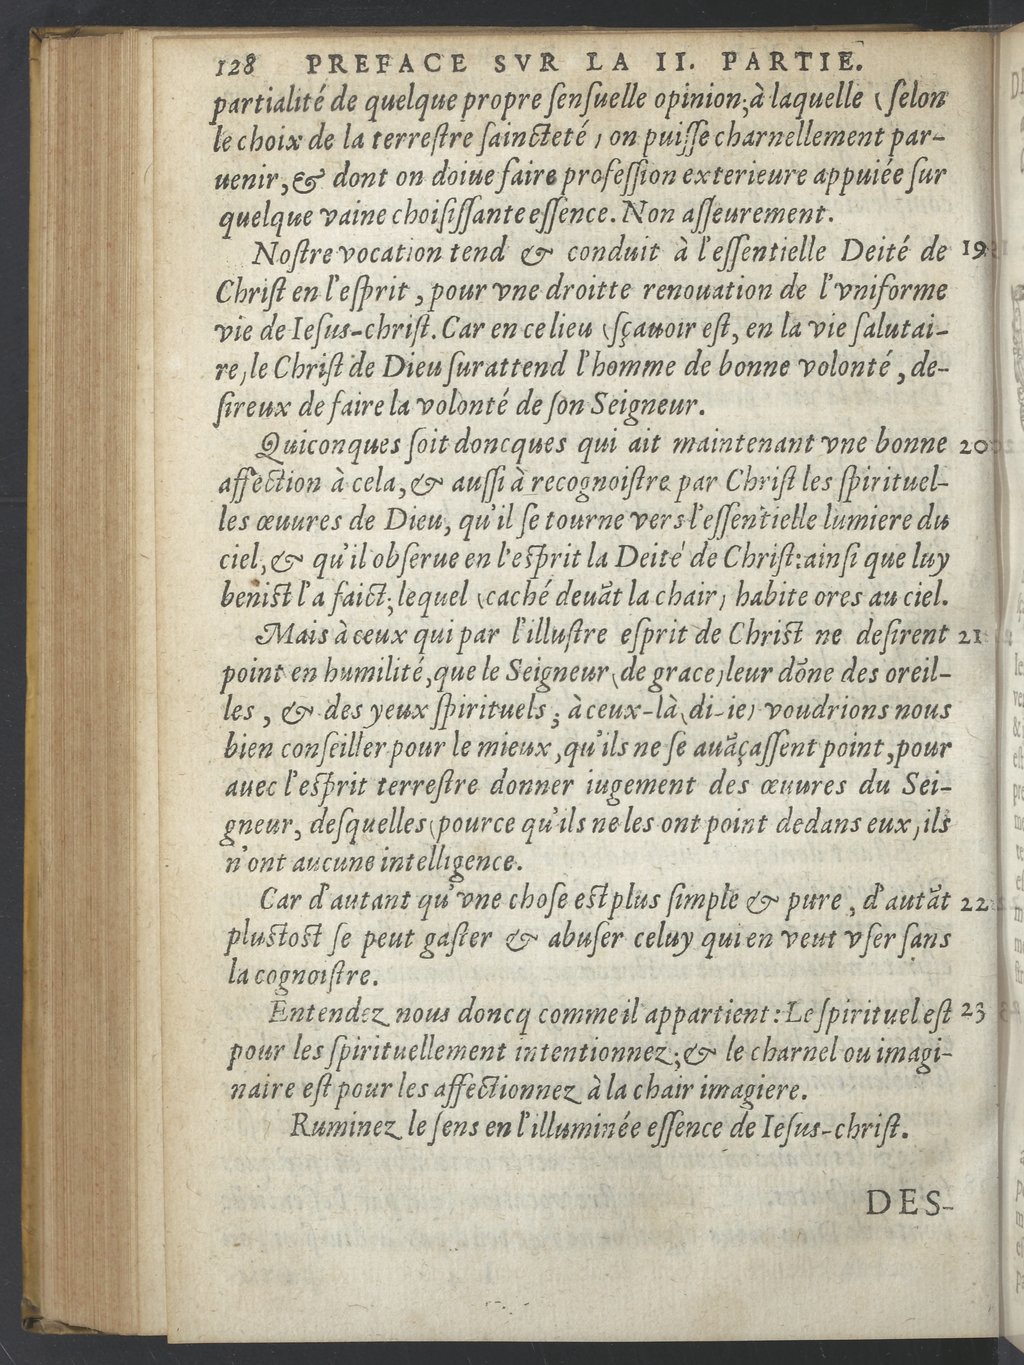 128 PREFACE SVR LA II. PARTIE.
partialité de quelque propre ſenſuelle opinion; à laquelle (ſelon
le choix de la terreſtre ſaincteté) on puiſſe charnellement par-
uenir, & dont on doiue faire profeſſion exterieure appuiée ſur
quelque vaine choiſiſſante eſſence. Non aſſeurement.
Noſtre vocation tend & conduit à l'eſſentielle Deité de 19
Chriſt en l'eſprit, pour vne droitte renouation de l'vniforme
vie de Ieſus-chriſt. Car en ce lieu (ſçauoir eſt, en la vie ſalutai-
re) le Chriſt de Dieu ſurattend l'homme de bonne volonté, de-
ſireux de faire la volonté de ſon Seigneur.
Quiconques ſoit doncques qui ait maintenant vne bonne 20
affection à cela, & auſſi à recognoiſtre par Chriſt les ſpirituel-
les œuures de Dieu, qu'il ſe tourne vers l'eſſentielle lumiere du
ciel, & qu'il obſerue en l'eſprit la Deité de Chriſt: ainſi que luy
beniſt l'a faict; lequel (caché deuāt la chair) habite ores au ciel.
Mais à ceux qui par l'illuſtre eſprit de Chriſt ne deſirent 21
point en humilité, que le Seigneur (de grace) leur dōne des oreil-
les, & des yeux ſpirituels; à ceux-là (di-ie) voudrions nous
bien conſeiller pour le mieux, qu'ils ne ſe auāçaſſent point, pour
auec l'eſprit terreſtre donner iugement des œuures du Sei-
gneur, deſquelles (pource qu'ils ne les ont point dedans eux) ils
n'ont aucune intelligence.
Car d'autant qu'vne choſe eſt plus ſimple & pure, d'autāt 22
pluſtoſt ſe peut gaſter & abuſer celuy qui en veut vſer ſans
la cognoiſtre.
Entendez nous doncq comme il appartient: Le ſpirituel eſt 23
pour les ſpirituellement intentionnez; & le charnel ou imagi-
naire eſt pour les affectionnez à la chair imagiere.
Ruminez le ſens en l'illuminée eſſence de Ieſus-chriſt.
DES-